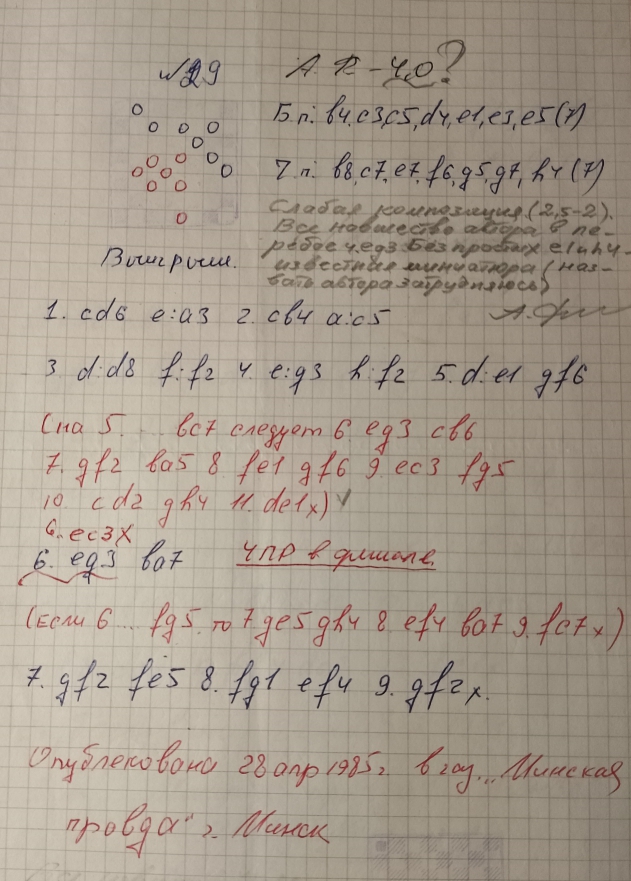 №29 А. R - 4,0?
Б.п: b4, c3, c5, d4, e1, e3, e5 (7)
Ч.п: b8, c7, e7, f6, g5, g7, h4 (7)
Слабая композиция (2,5-2).
Все новшество автора в пе-
ребое 4.eg3 без пробных e1 и h4 -
известная миниатюра (наз-
вать автора затрудняюсь)
Выигрыш.
1. cd6 e:a3 2. cb4 a:c5
3 d:d8 f:f2 4. e:g3 h:f2 5. d:e1 gf6
(на 5. ... bc7 следует 6. eg3 cb6
7. gf2 ba5 8 fe1 gf6 9. ec3 fg5
10. cd2 gh4 11. de1x)
6. ec3X
6. eg3 ba7 ЧПР в финале
(Если 6 ... fg5. то 7 ge5 gh4 8. ef4 ba7 9. fc7x)
7. gf2 fe5 8. fg1 ef4 9. gf2x.
Опубликована 28 апр 1985г. в газ. „Минская
правда" г. Минск